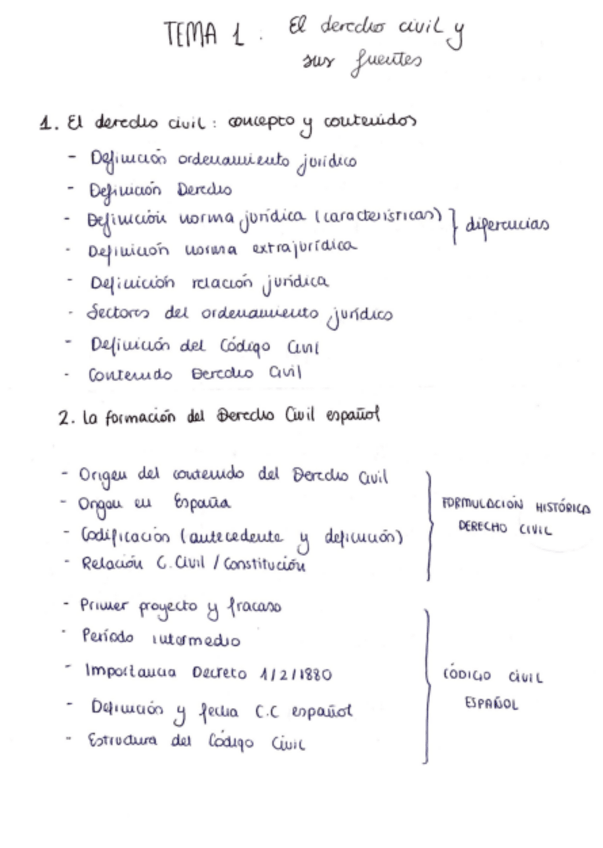 TEMA 1. El derecho civil y
sus fuentes
1. El derecho civil: concepto y contenidos
- Definición ordenamiento jurídico
- Definición Derecho
- Definición norma jurídica (características) } diferencias
- Definición norma extrajurídica
- Definición relación jurídica
- Sectores del ordenamiento jurídico
- Definición del Código Civil
- Contenido Derecho Civil
2. La formación del Derecho Civil español
- Origen del contenido del Derecho Civil
- Origen en España
- Codificación (antecedente y definición)
- Relación C. Civil / Constitución
FORMULACIÓN HISTÓRICA
DERECHO CIVIL
- Primer proyecto y fracaso
- Período intermedio
- Importancia Decreto 1/2/1880
- Definición y fecha C.C español
- Estructura del Código Civil
CÓDIGO CIVIL
ESPAÑOL